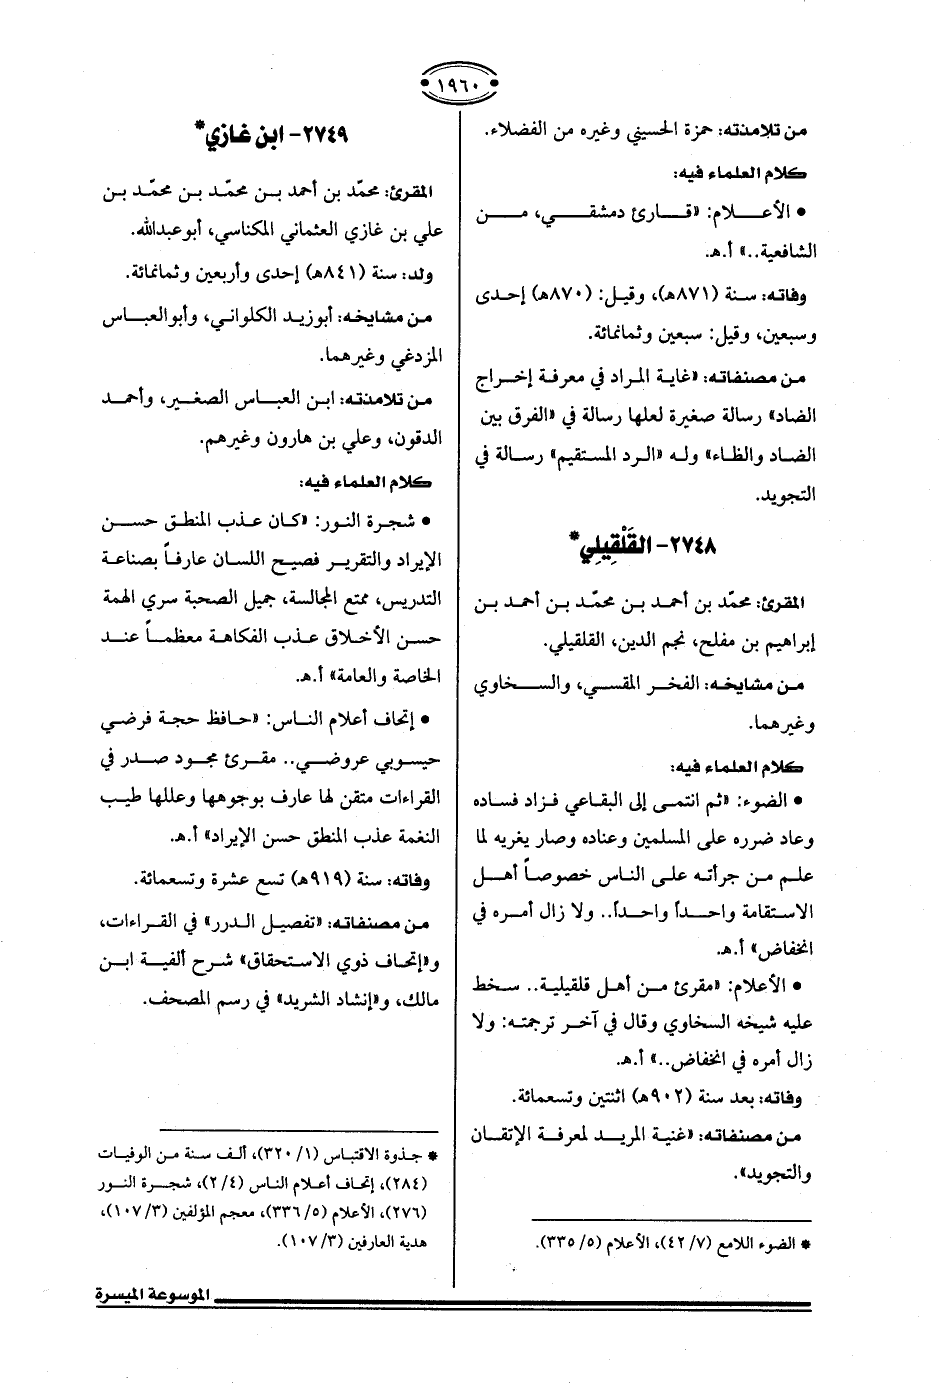 ١٩٦٠
من تلامذته: حمزة الحسيني وغيره من الفضلاء.
كلام العلماء فيه:
• الأعلام: «قارئ دمشقي، من
الشافعية..» أ.هـ.
وفاته: سنة (٨٧١هـ)، وقيل: (٨٧٠هـ) إحدى
وسبعين، وقيل: سبعين وثمانمائة.
من مصنفاته: «غاية المراد في معرفة إخراج
الضاد» رسالة صغيرة لعلها رسالة في «الفرق بين
الضاد والظاء» وله «الرد المستقيم» رسالة في
التجويد.
٢٧٤٨- القَلْقِيلِي*
المقرئ: محمّد بن أحمد بن محمّد بن أحمد بن
إبراهيم بن مفلح، نجم الدين، القلقيلي.
من مشايخه: الفخر المقسي، والسخاوي
وغيرهما.
كلام العلماء فيه:
• الضوء: «ثم انتمى إلى البقاعي فزاد فساده
وعاد ضرره على المسلمين وعناده وصار يغريه لما
علم من جرأته على الناس خصوصاً أهل
الاستقامة واحداً واحداً.. ولا زال أمره في
انخفاض» أ.هـ.
• الأعلام: «مقرئ من أهل قلقيلية.. سخط
عليه شيخه السخاوي وقال في آخر ترجمته: ولا
زال أمره في انخفاض..» أ.هـ.
وفاته: بعد سنة (٩٠٢هـ) اثنتين وتسعمائة.
من مصنفاته: «غنية المريد لمعرفة الإتقان
والتجويد».
* الضوء اللامع (٧/ ٤٢)، الأعلام (٥/ ٣٣٥).
٢٧٤٩- ابن غازي*
المقرئ: محمّد بن أحمد بن محمّد بن محمّد بن
علي بن غازي العثماني المكناسي، أبو عبدالله.
ولد: سنة (٨٤١هـ) إحدى وأربعين وثمانمائة.
من مشايخه: أبو زيد الكلواني، وأبو العباس
المزدغي وغيرهما.
من تلامذته: ابن العباس الصغير، وأحمد
الدقون، وعلي بن هارون وغيرهم.
كلام العلماء فيه:
• شجرة النور: «كان عذب المنطق حسن
الإيراد والتقرير فصيح اللسان عارفاً بصناعة
التدريس، ممتع المجالسة، جميل الصحبة سري الهمة
حسن الأخلاق عذب الفكاهة معظماً عند
الخاصة والعامة» أ.هـ.
• إتحاف أعلام الناس: «حافظ حجة فرضي
حيسوبي عروضي.. مقرئ مجود صدر في
القراءات متقن لها عارف بوجوهها وعللها طيب
النغمة عذب المنطق حسن الإيراد» أ.هـ.
وفاته: سنة (٩١٩هـ) تسع عشرة وتسعمائة.
من مصنفاته: «تفصيل الدرر» في القراءات،
و«إتحاف ذوي الاستحقاق» شرح ألفية ابن
مالك، و«إنشاد الشريد» في رسم المصحف.
* جذوة الاقتباس (١/ ٣٢٠)، ألف سنة من الوفيات
(٢٨٤)، إتحاف أعلام الناس (٤/ ٢)، شجرة النور
(٢٧٦)، الأعلام (٥/ ٣٣٦)، معجم المؤلفين (٣/ ١٠٧)،
هدية العارفين (٣/ ١٠٧).
الموسوعة الميسرة